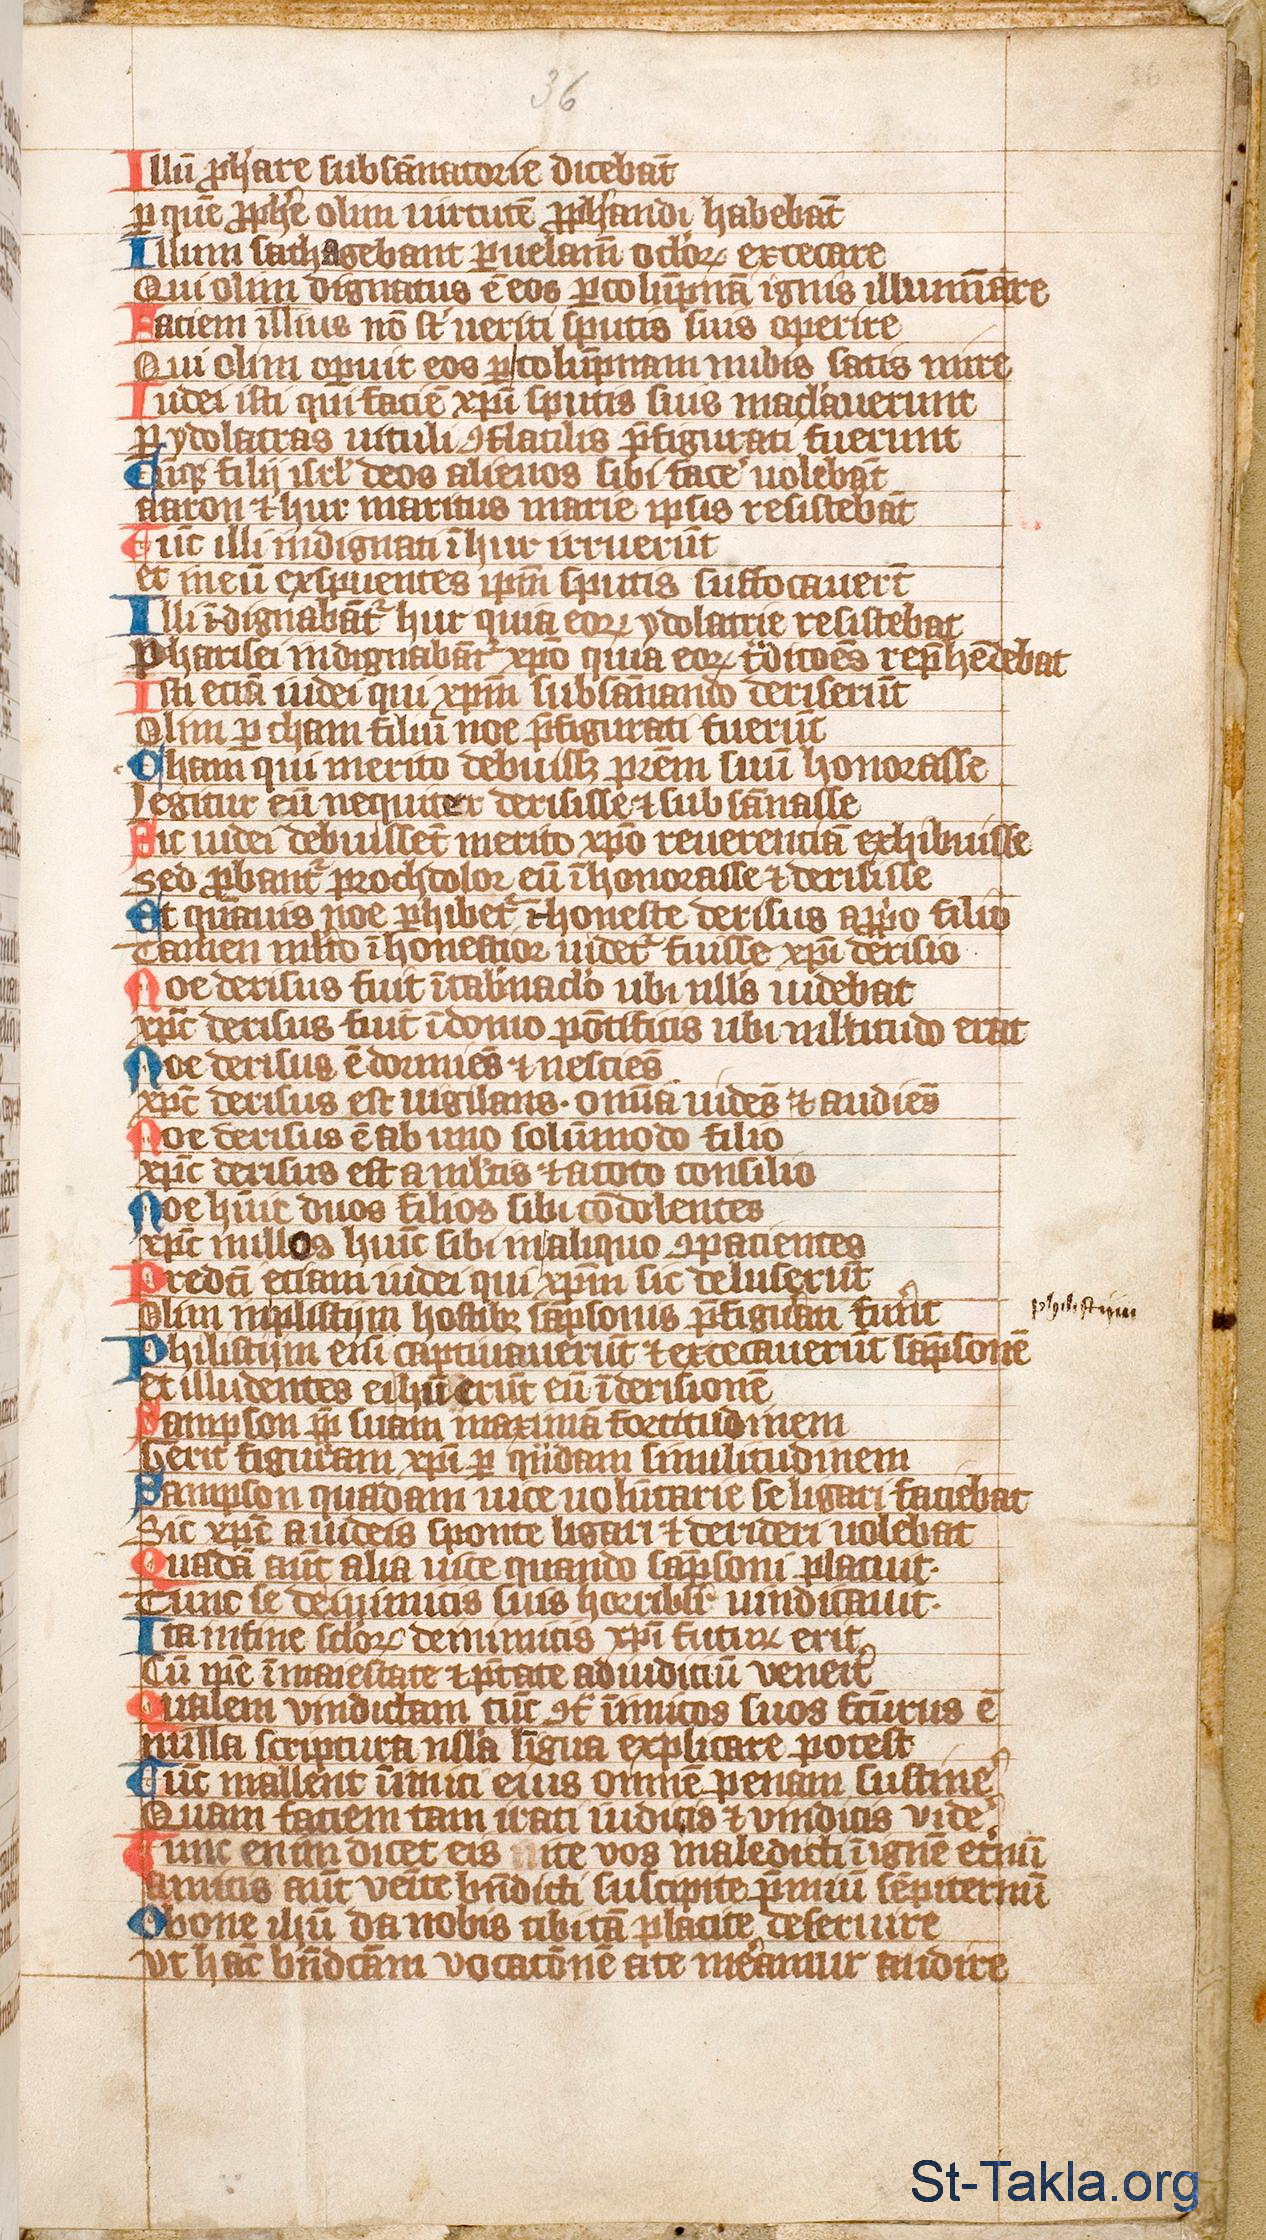 36
Illū ꝓphare subsānatorie dicebāt
ꝑ quē ꝓphe olim uirtutē ꝓphandi habebāt
Illum sathagebant ꝑ uelamē oclorꝝ excecare
Qui olim dignatus ē eos ꝑ colūpnā ignis illuminare
Faciem illius nō st ueriti sputis suis operire
Qui olim opuit eos ꝑ colūpnam nubis satis mire
Iudei isti qui faciē xp̄i sputis suis maclauerunt
ꝑ ydolatras uituli ꝯflatilis p̄figurati fuerunt
Cūqꝫ filij isrl deos alienos sibi face uolebāt
aaron ⁊ hur maritus marie ipsis resistebāt
Tūc illi indignati ī hur irruerūt
et in eū exspuentes ip̄m sputis suffocauerūt
Illi īdignabāt hur quia eorꝝ ydolatrie resistebat
Pharisei indignabāt xp̄o quia eorꝝ tͣdicōes rep̄hēdebat
Isti etiā iudei qui xp̄m subsānando deriserūt
Olim ꝑ cham filiū noe p̄figurati fuerūt
Cham qui merito debuissꝫ prēm suū honorasse
legitur eū nequiter derisisse ⁊ subsānasse
Sic iudei debuissēt merito xp̄o reuerenciā exhibuisse
sed ꝓbantͬ prochdolor eū īhonorasse ⁊ derisisse
Et quāuis noe ꝑhibetͬ īhoneste derisus a ꝓpͥo filio
Tamen mlto īhonestior uidetͬ fuisse xp̄i derisio
Noe derisus fuit ī tab'naclo ubi nll's uidebat
xp̄c derisus fuit ī domo pōtificis ubi mltitudo erat
Noe derisus ē dormiēs ⁊ nesciēs
xp̄c derisus est uigilans. omīa uidēs ⁊ audiēs
Noe derisus ē ab uno solūmodo filio
xp̄c derisus est a mltis ⁊ a toto consilio
Noe hūit duos filios sibi cōdolentes
xp̄c nullos hūit sibi in aliquo ꝯpacientes
Predcī etiam iudei qui xp̄m sic deluserūt
Olim in plistijm hostibꝫ sāpsonis p̄figurati fuerūt
phylistyim
Philistijm eni captiuauerūt ⁊ excecauerūt sāpsonē
et illudentes ei hūerūt eū ī derisionē
Sampson ꝓp̄ suam maximā fortitudinem
Gerit figuram xp̄i ꝑ qͣdam similitudinem
Sampson quadam uice uolūtarie se ligari faciebat
Sic xp̄c a iudeis sponte ligari ⁊ derideri uolebat
Quadā aūt alia uice quando sāpsoni placuit.
Tunc se de inimicis suis horriblit͛ uindicauit.
Ita in fine sclorꝝ de inimicis xp̄i futurꝝ erit
Cū ip̄e ī maiestate ⁊ p̄tate ad iudiciū venerit
Qualem vindictam tūc ꝯtͣ inimicos suos fcūrus ē
nulla scriptura nlla līgua explicare potest
Tūc mallent inimici eius omnē penam sustine͛
Quam faciem tam irati iudicis ⁊ vindicis vide͛
Tunc enim dicet eis ite vos maledicti ī ignē et͛nū
amicis aūt venite bn̄dicti suscipite p̄miū sēpiternū
O bone ihū da nobis tibi tā placite deseruire
vt hāc bn̄dcām vocacōnē a te mereamur audire
St-Takla.org